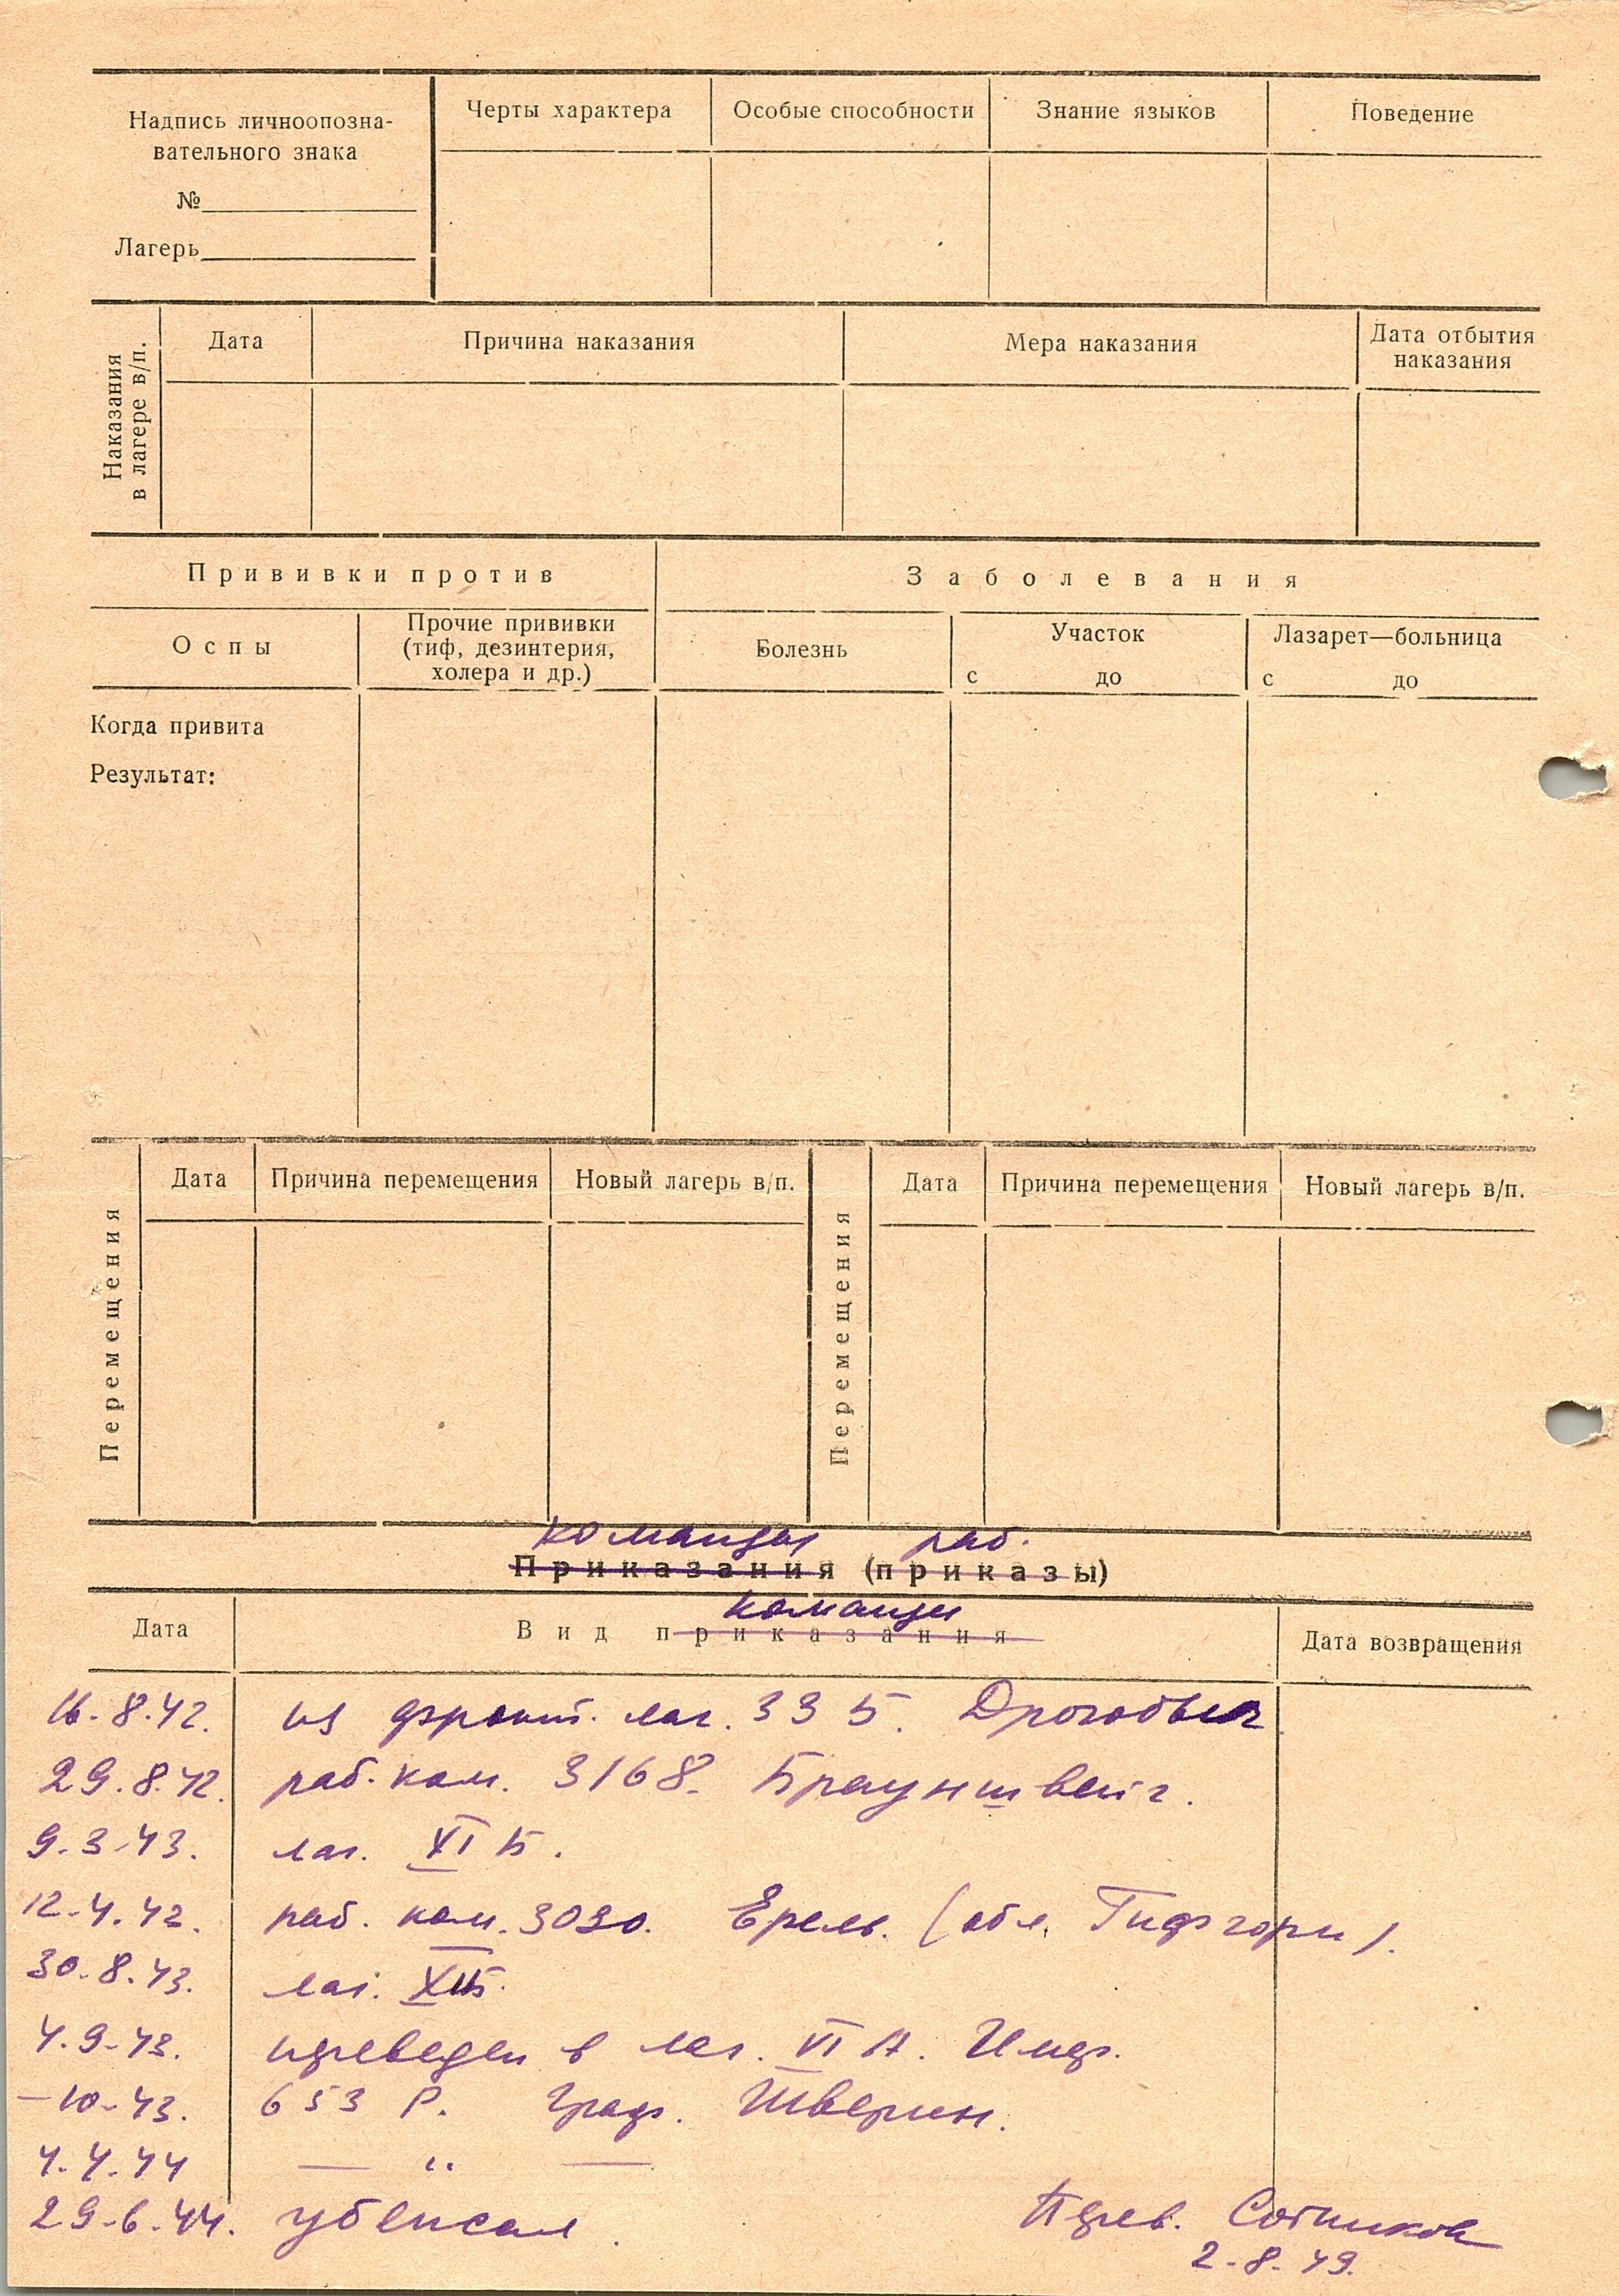 Надпись личноопозна-
вательного знака
№
Лагерь
Черты характера
Особые способности
Знание языков
Поведение
Наказания
в лагере в/п.
Дата
Причина наказания
Мера наказания
Дата отбытия
наказания
Прививки против
Заболевания
Оспы
Прочие прививки
(тиф, дезинтерия,
холера и др.)
Болезнь
Участок
с до
Лазарет—больница
с до
Когда привита
Результат:
Перемещения
Дата
Причина перемещения
Новый лагерь в/п.
Перемещения
Дата
Причина перемещения
Новый лагерь в/п.
команды раб.
Приказания (приказы)
команды
Дата
Вид приказания
Дата возвращения
16.8.42. из фронт. лаг. 335. Дрогобыч
29.8.42. раб. ком. 3168. Брауншвейг.
9.3.43. лаг. XI Б.
12.4.42. раб. ком. 3030. (обл.
30.8.43. лаг. XIБ.
4.9.43. переведен в лаг. VI А.
–10.43. 653 Р. Шверин.
4.4.44 — „ —
29.6.44. убежал.
Перев. Сотников
2.8.49.